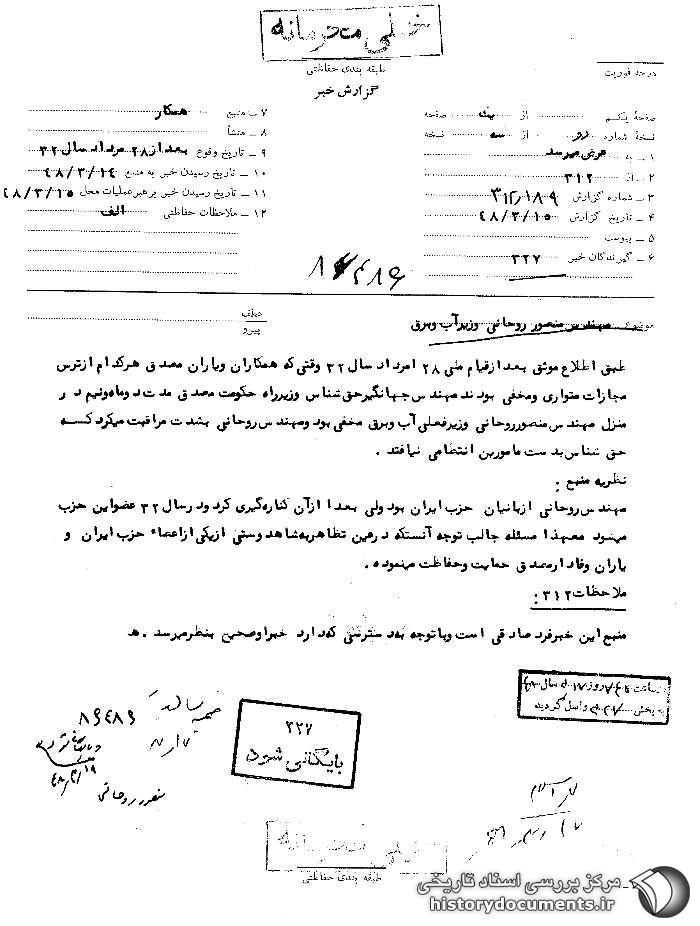 خیلی محرمانه
طبقه بندی حفاظتی
درجه فوریت
گزارش خبر
صفحهٔ یکم از یک صفحه
نسخهٔ شماره دو از سه نسخه
۱ ـ به عرض میرسد
۲ ـ از ۳۱۲
۳ ـ شماره گزارش ۳۱۲/۱۸۰۹
۴ ـ تاریخ گزارش ۴۸/۳/۱۵
۵ ـ پیوست
۶ ـ گیرندگان خبر ۳۲۷
۷ ـ منبع همکار
۸ ـ منشأ
۹ ـ تاریخ وقوع بعد از ۲۸ مرداد سال ۳۲
۱۰ ـ تاریخ رسیدن خبر به منبع ۴۸/۳/۱۴
۱۱ ـ تاریخ رسیدن خبر برهبرعملیات محل ۴۸/۳/۱۵
۱۲ ـ ملاحظات حفاظتی الف
عطف
پیرو
موضوع مهندس منصور روحانی وزیر آب وبرق
طبق اطلاع موثق بعد ازقیام ملی ۲۸ امرداد سال ۳۲ وقتی که همکاران ویاران مصدق هرکدام ازترس
مجازات متواری ومخفی بودند مهندس جهانگیرحق شناس وزیرراه حکومت مصدق مدت دوماه ونیم در
منزل مهندس منصورروحانی وزیرفعلی آب وبرق مخفی بود ومهندس روحانی بشدت مراقبت میکرد کسه
حق شناس بدست مامورین انتظامی نیافتد .
نظریه منبع :
مهندس روحانی ازبانیان حزب ایران بود ولی بعد ازآن کناره گیری کرد ودرسال ۳۲ عضواین حزب
نبود معهذا مسئله جالب توجه آنستکه درعین تظاهربه شاهدوستی ازیکی ازاعضاء حزب ایران و
یاران وفادارمصدق حمایت وحفاظت مینموده .
ملاحظات ۳۱۲ :
منبع این خبرفرد صادقی است وباتوجه به دسترسی که دارد خبراوصحیح بنظرمیرسد . ه
بایگانی شود
۳۲۷
منصور روحانی
خیلی محرمانه
طبقه بندی حفاظتی
مرکز بررسی اسناد تاریخی
historydocuments.ir